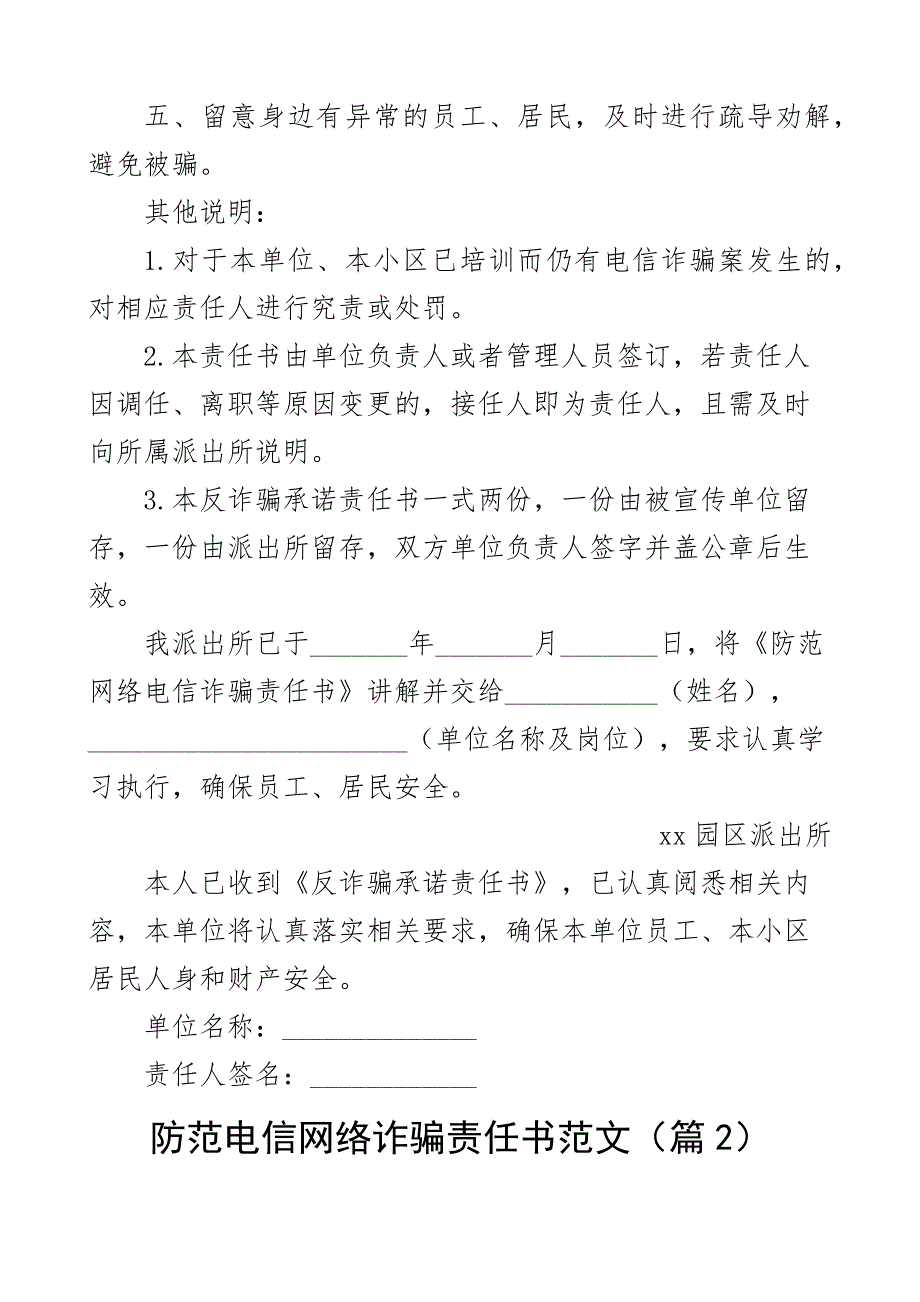 五、留意身边有异常的员工、居民，及时进行疏导劝解，
避免被骗。
其他说明：
1.对于本单位、本小区已培训而仍有电信诈骗案发生的，
对相应责任人进行究责或处罚。
2.本责任书由单位负责人或者管理人员签订，若责任人
因调任、离职等原因变更的，接任人即为责任人，且需及时
向所属派出所说明。
3.本反诈骗承诺责任书一式两份，一份由被宣传单位留
存，一份由派出所留存，双方单位负责人签字并盖公章后生
效。
我派出所已于_______年_______月_______日，将《防范
网络电信诈骗责任书》讲解并交给___________（姓名），
_______________________（单位名称及岗位），要求认真学
习执行，确保员工、居民安全。
xx园区派出所
本人已收到《反诈骗承诺责任书》，已认真阅悉相关内
容，本单位将认真落实相关要求，确保本单位员工、本小区
居民人身和财产安全。
单位名称：______________
责任人签名：____________
防范电信网络诈骗责任书范文（篇2）